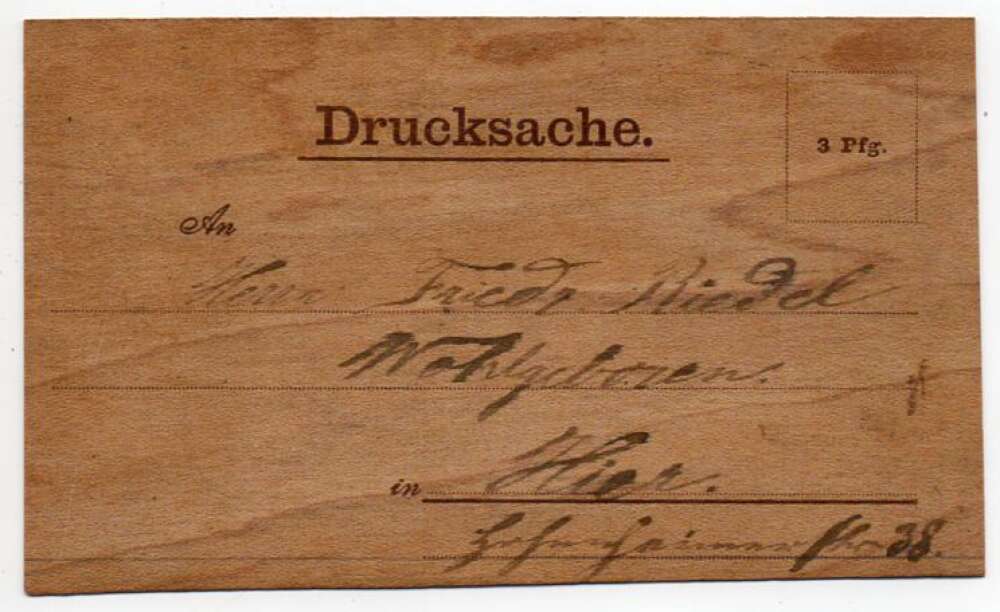 Drucksache.
3 Pfg.
An
Herrn Friedr. Riedel
Wohlgeboren.
in Hier.
Hohenheimer Str. 38.